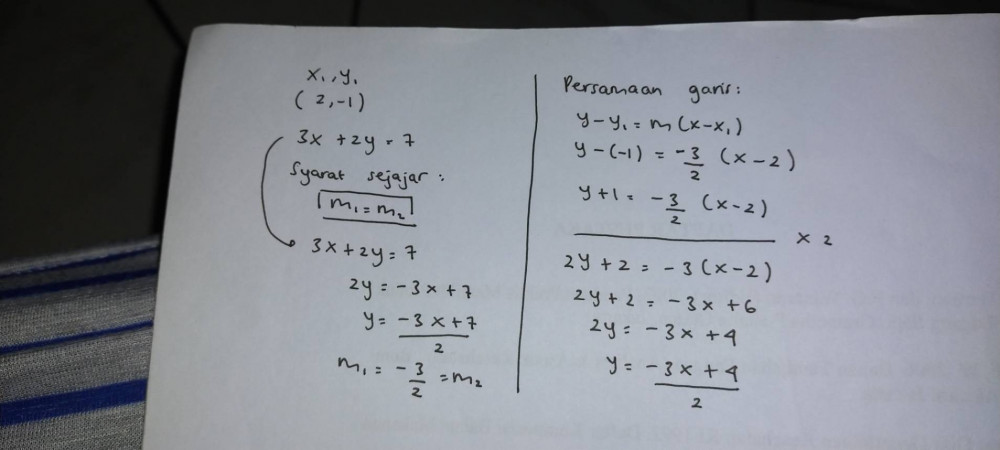 x₁, y₁
(2, -1)
3x + 2y = 7
Syarat sejajar:
m₁ = m₂
3x + 2y = 7
2y = -3x + 7
y = -3x + 7
2
m₁ = -3/2 = m₂
Persamaan garis:
y - y₁ = m(x - x₁)
y - (-1) = -3/2 (x - 2)
y + 1 = -3/2 (x - 2)
x 2
2y + 2 = -3(x - 2)
2y + 2 = -3x + 6
2y = -3x + 4
y = -3x + 4
2